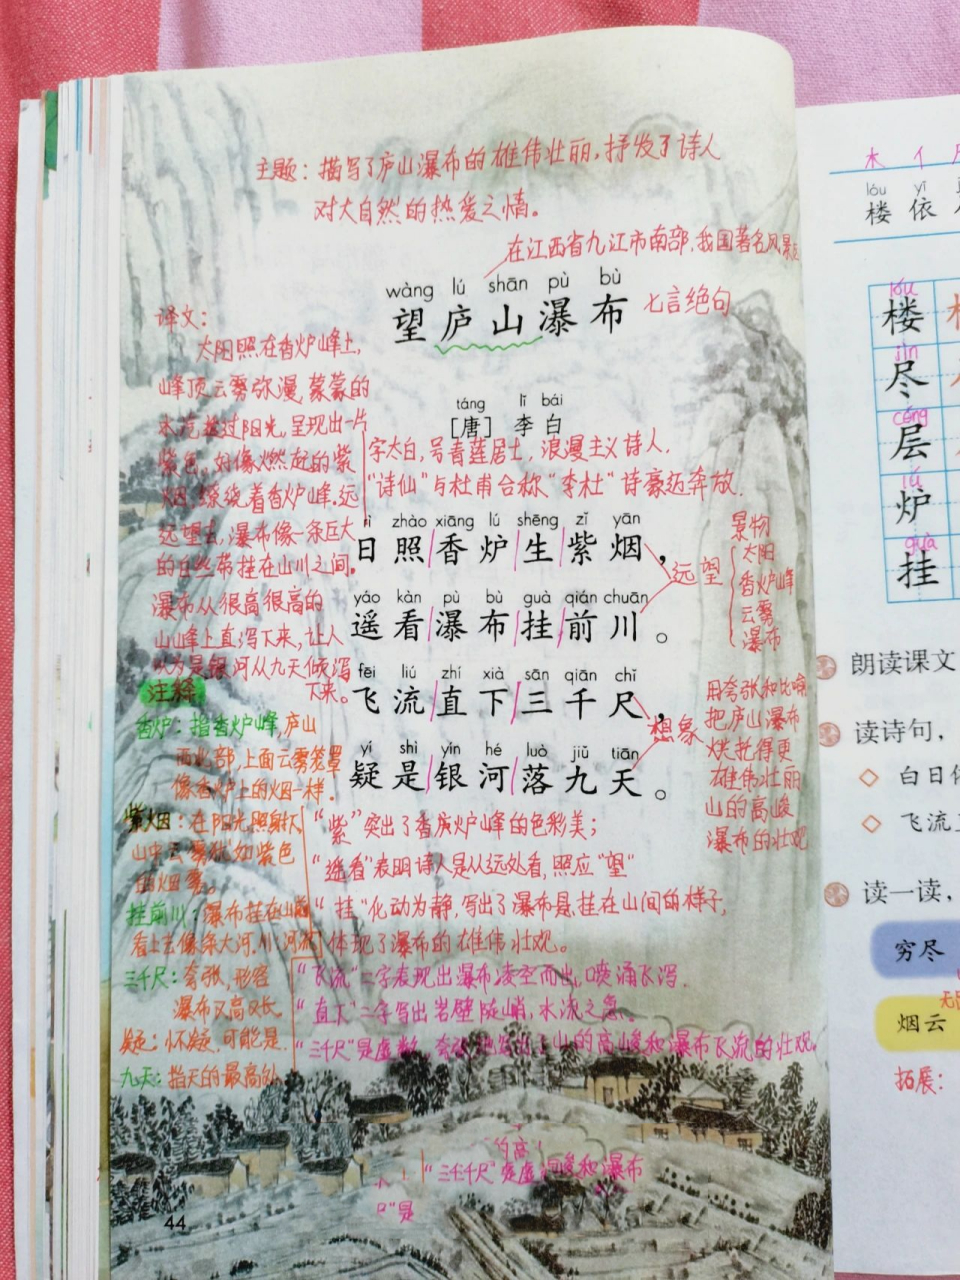 主题：描写了庐山瀑布的雄伟壮丽，抒发了诗人
对大自然的热爱之情。
在江西省九江市南部，我国著名风景区
wàng lú shān pù bù
望庐山瀑布
七言绝句
táng lǐ bái
［唐］李白
字太白，号青莲居士，浪漫主义诗人，
“诗仙”与杜甫合称“李杜”诗豪迈奔放．
rì zhào xiāng lú shēng zǐ yān
日照香炉生紫烟，
yáo kàn pù bù guà qián chuān
遥看瀑布挂前川。
fēi liú zhí xià sān qiān chǐ
飞流直下三千尺，
yí shì yín hé luò jiǔ tiān
疑是银河落九天。
远望
想象
景物
太阳
香火炉峰
云雾
瀑布
用夸张和比喻
把庐山瀑布
烘托得更
雄伟壮丽
山的高峻
瀑布的壮观
译文：
太阳照在香炉峰上，
峰顶云雾弥漫，蒙蒙的
水汽透过阳光，呈现出一片
紫色，好像燃起的紫
烟，缭绕着香炉峰，远
远望去，瀑布像一条巨大
的白丝带挂在山川之间。
瀑布从很高很高的
山峰上直泻下来，让人
以为是银河从九天倾泻
下来。
注释
香炉：指香炉峰，庐山
西北部，上面云雾笼罩
像香炉上的烟一样．
紫烟：在阳光照射下
山中云雾犹如紫色
的烟雾。
挂前川：瀑布挂在山前
看上去像条大河．川：河流
三千尺：夸张，形容
瀑布又高又长．
疑：怀疑，可能是．
九天：指天的最高处
“紫”突出了香炉峰的色彩美；
“遥看”表明诗人是从远处看，照应“望”
“挂”化动为静，写出了瀑布悬挂在山间的样子，
体现了瀑布的雄伟壮观。
“飞流”二字表现出瀑布凌空而出，喷涌飞泻．
“直下”二字写出岩壁陡峭，水流之急。
“三千尺”是虚数，夸张地写出了山的高峻和瀑布飞流的壮观．
的高
瀑布
尺”是
44
木 亻
lóu yī
楼 依
lóu
楼
jìn
尽
céng
层
lú
炉
guà
挂
朗读课文
读诗句，
◇ 白日依
◇ 飞流直
读一读，
穷尽
烟云
拓展：